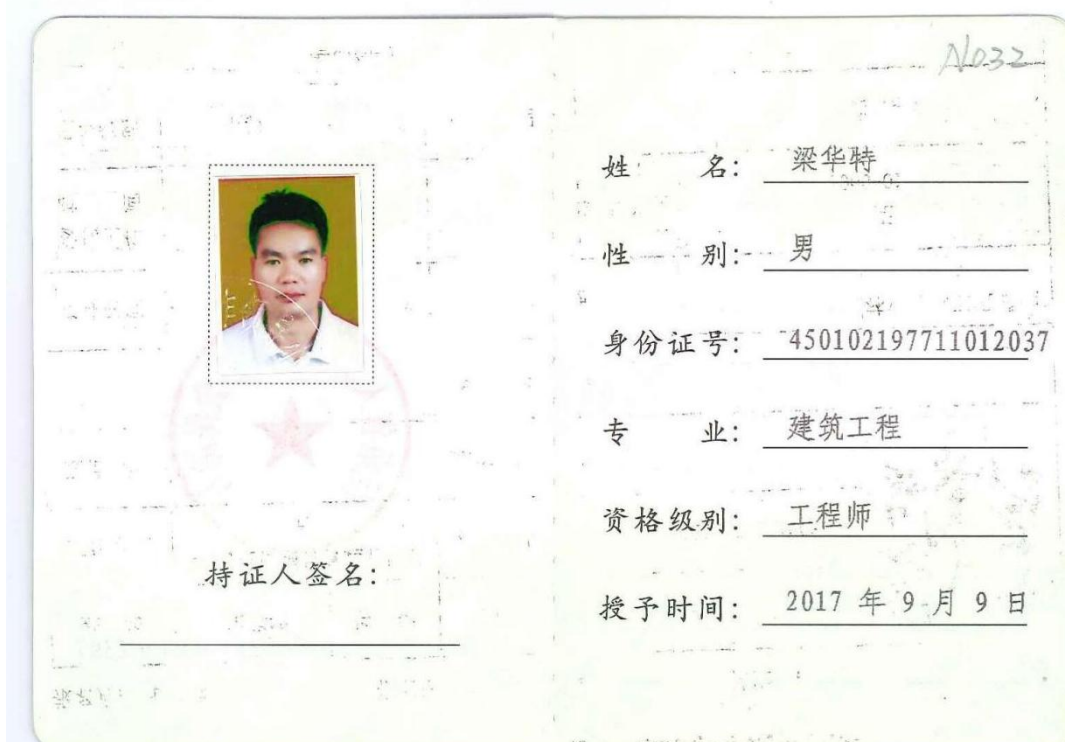 持证人签名：
N032
姓　　名： 梁华特
性　　别： 男
身份证号： 450102197711012037
专　　业： 建筑工程
资格级别： 工程师
授予时间： 2017 年 9 月 9 日